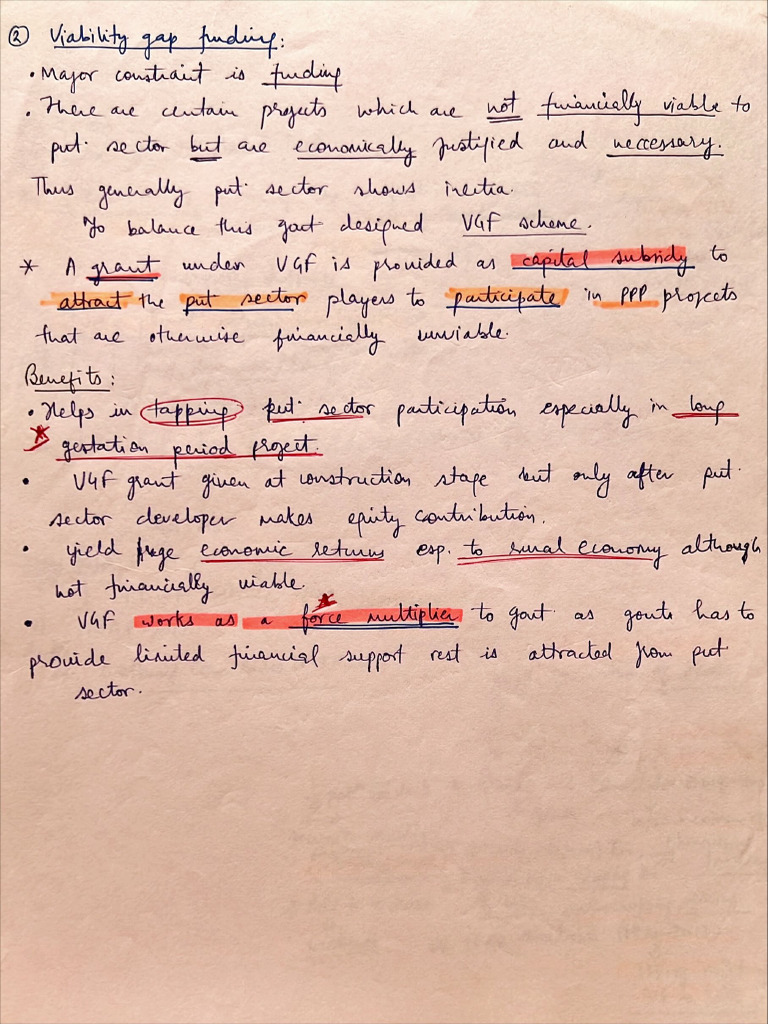 ② Viability gap funding:
• Major constraint is funding
• There are certain projects which are not financially viable to
pvt. sector but are economically justified and necessary.
Thus generally pvt. sector shows inertia.
To balance this govt designed VGF scheme.
* A grant under VGF is provided as capital subsidy to
attract the pvt sector players to participate in PPP projects
that are otherwise financially unviable.
Benefits:
• Helps in tapping pvt. sector participation especially in long
gestation period project.
• VGF grant given at construction stage but only after pvt.
sector developer makes equity contribution.
• yield huge economic returns esp. to rural economy although
not financially viable.
• VGF works as a force multiplier to govt. as govts has to
provide limited financial support rest is attracted from pvt
sector.